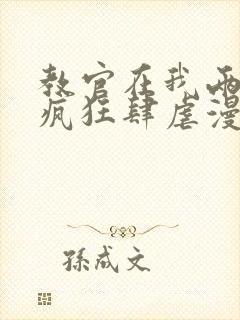 教官在我两
疯狂肆虐漫
孫成文